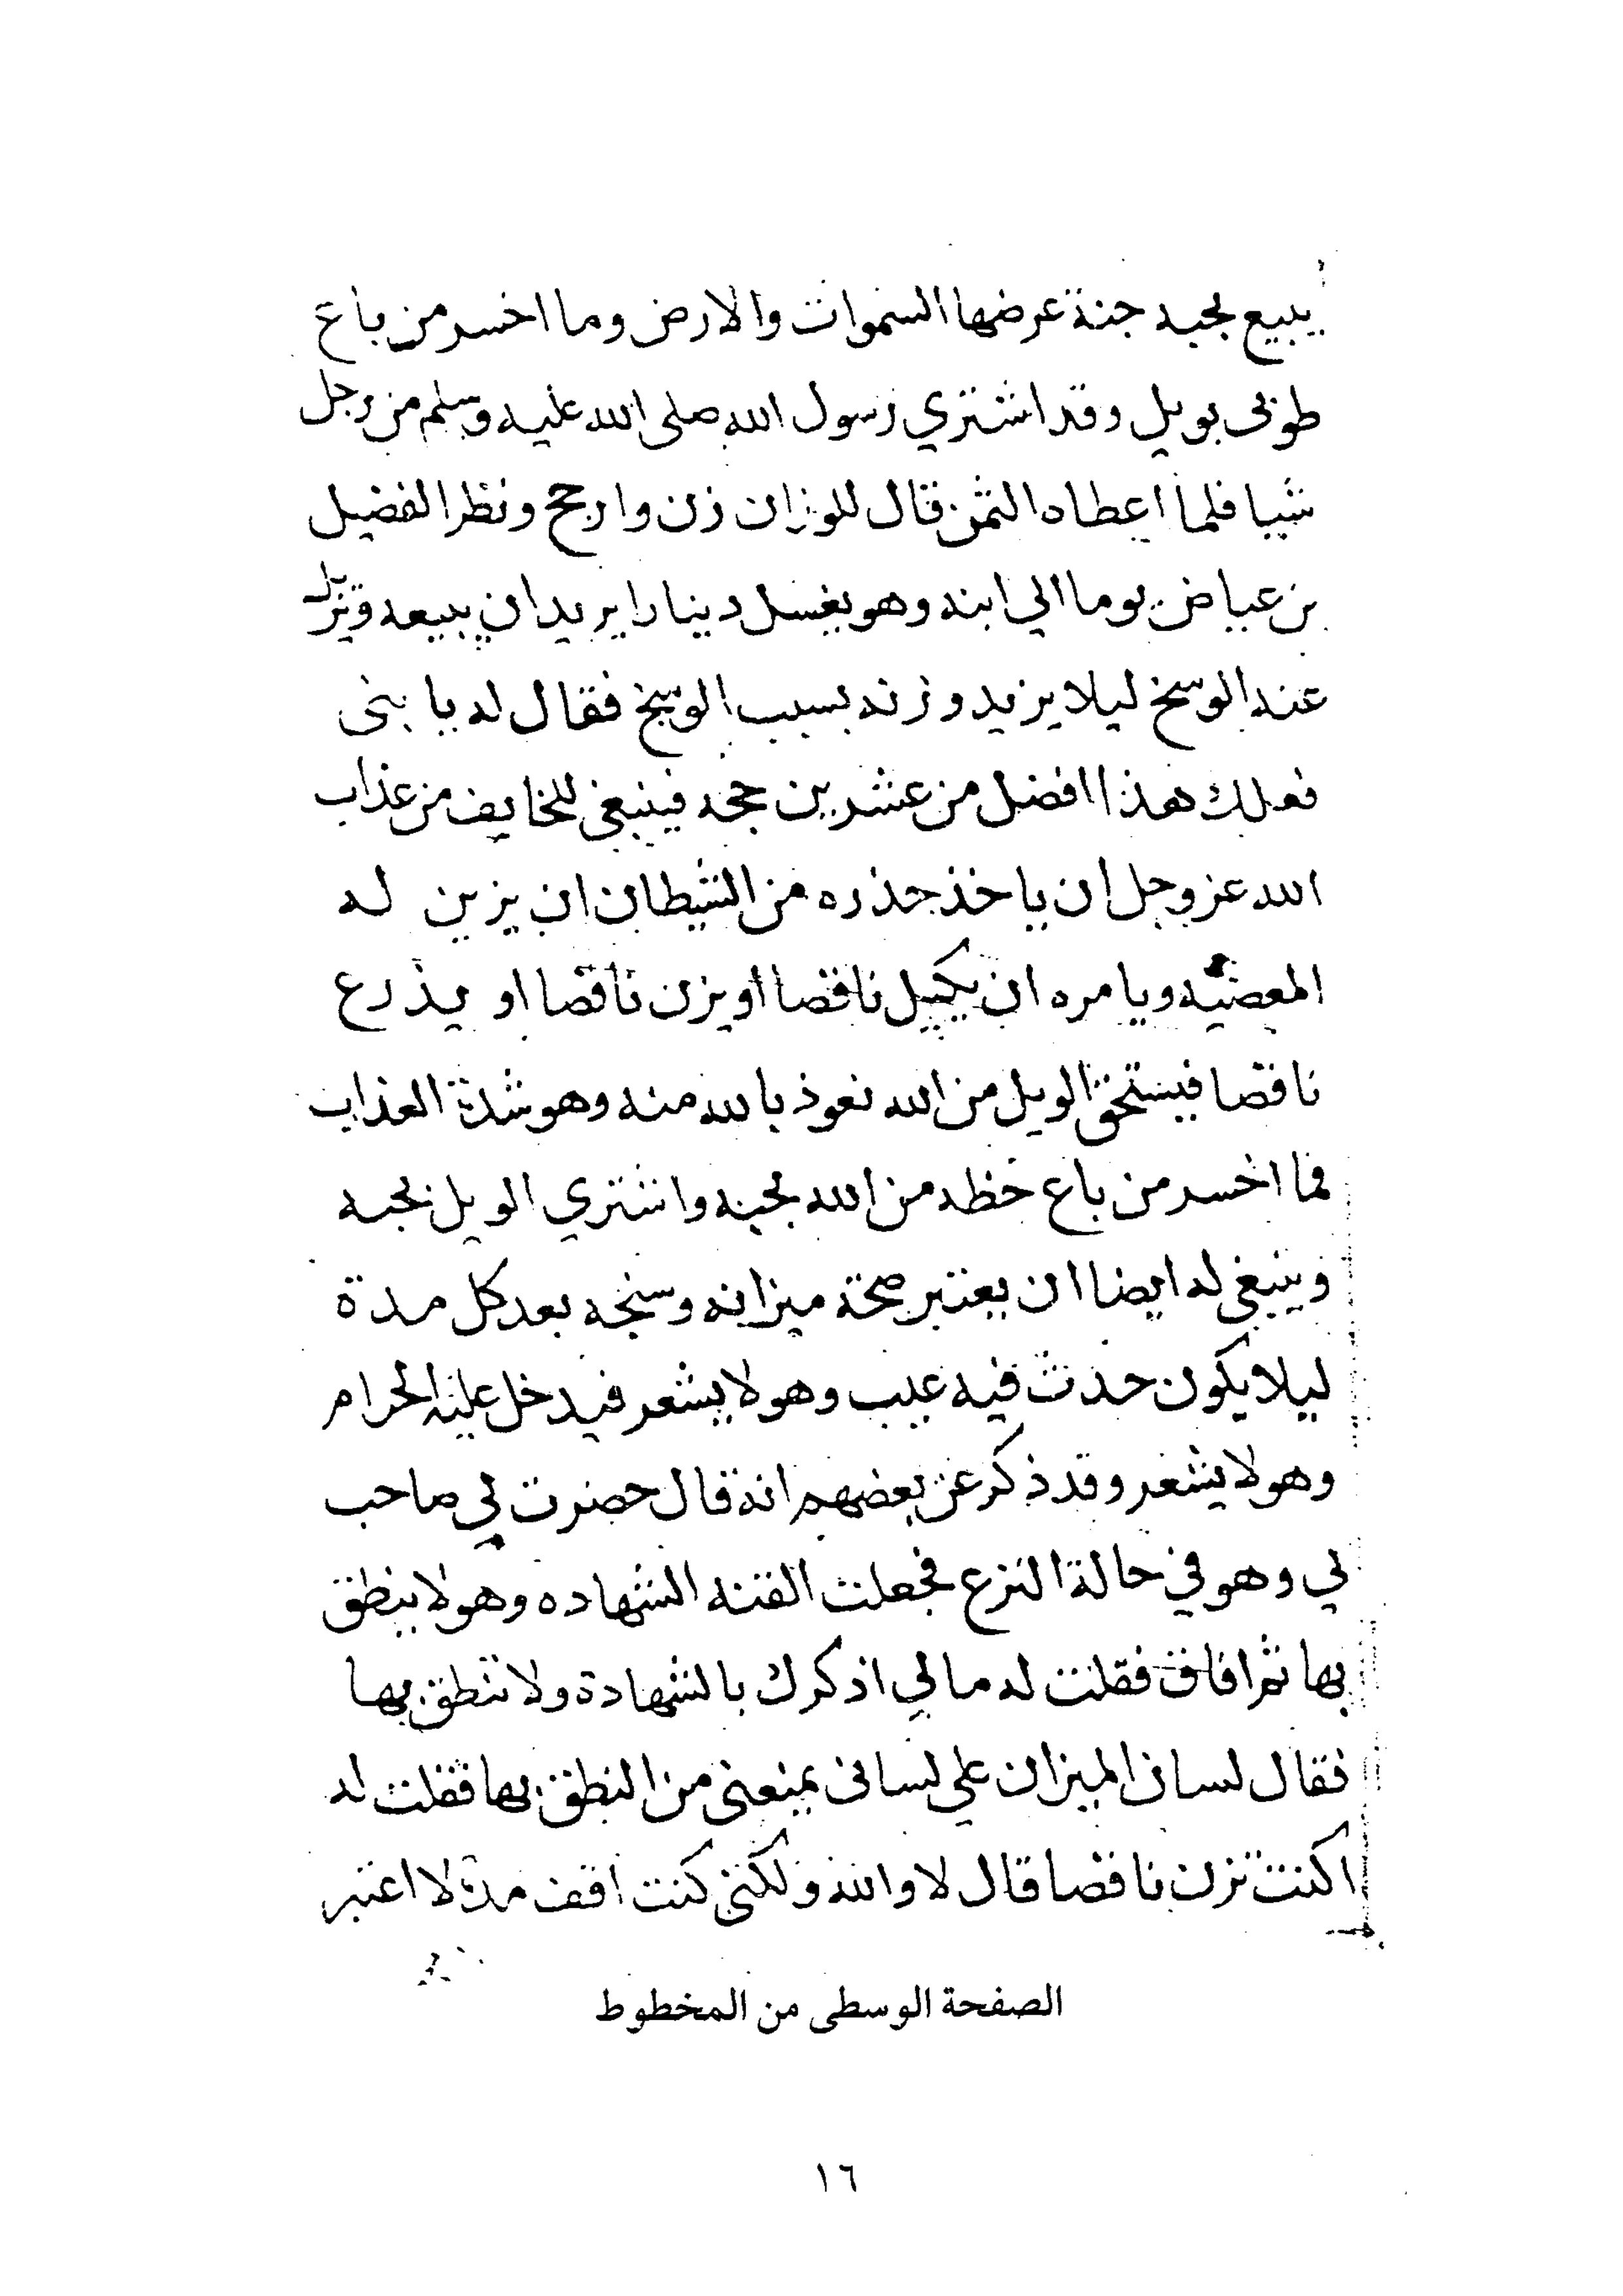 يبيع بحبه جنة عرضها السموات والارض وما اخسر من باع
طوبى بويل وقد اشتري رسول الله صلى الله عليه وسلم من رجل
شيا فلما اعطاه الثمن قال للوزان زن وارجح ونظر الفضيل
بن عياض يوما الي ابنه وهو يغسل دينارا يريد ان يبيعه ويزيل
عنه الوسخ ليلا يزيد وزنه بسبب الوسخ فقال له يا بنى
فعلك هذا افضل من عشرين حجه فينبغي للخايف من عذاب
الله عز وجل ان ياخذ حذره من الشيطان ان يزين له
المعصيه ويامره ان يكيل ناقصا او يزن ناقصا او يذرع
ناقصا فيستحق الويل من الله نعوذ بالله منه وهو شدة العذاب
فما اخسر من باع حظه من الله بحبه واشتري الويل بحبه
وينبغي له ايضا ان يعتبر صحة ميزانه وسنجه بعد كل مدة
ليلا يكون حدث فيه عيب وهو لا يشعر فيدخل عليه الحرام
وهو لا يشعر وقد ذكر عن بعضهم انه قال حضرت لي صاحب
لي وهو في حالة النزع فجعلت القنه الشهاده وهو لا ينطق
بها ثم افاق فقلت له مالي اذكرك بالشهادة ولا تنطق بها
فقال لسان الميزان علي لسانى يمنعنى من النطق بها فقلت له
اكنت تزن ناقصا قال لا والله ولكنني كنت اقف مدة لا اعتبر
الصفحة الوسطى من المخطوط
١٦